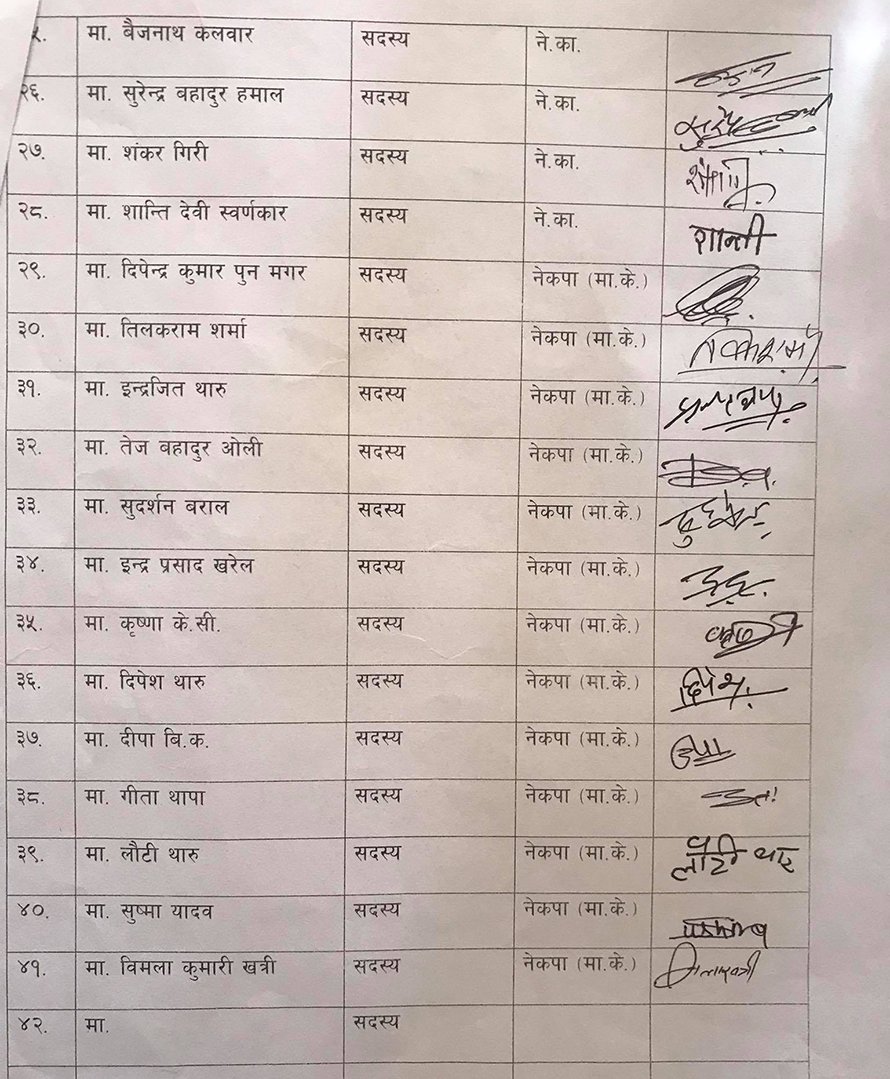 ५. मा. बैजनाथ कलवार सदस्य ने.का.
२६. मा. सुरेन्द्र वहादुर हमाल सदस्य ने.का.
२७. मा. शंकर गिरी सदस्य ने.का.
२८. मा. शान्ति देवी स्वर्णकार सदस्य ने.का. शान्ती
२९. मा. दिपेन्द्र कुमार पुन मगर सदस्य नेकपा (मा.के.)
३०. मा. तिलकराम शर्मा सदस्य नेकपा (मा.के.)
३१. मा. इन्द्रजित थारु सदस्य नेकपा (मा.के.)
३२. मा. तेज बहादुर ओली सदस्य नेकपा (मा.के.)
३३. मा. सुदर्शन बराल सदस्य नेकपा (मा.के.)
३४. मा. इन्द्र प्रसाद खरेल सदस्य नेकपा (मा.के.)
३५. मा. कृष्णा के.सी. सदस्य नेकपा (मा.के.)
३६. मा. दिपेश थारु सदस्य नेकपा (मा.के.) दिपेश
३७. मा. दीपा बि.क. सदस्य नेकपा (मा.के.)
३८. मा. गीता थापा सदस्य नेकपा (मा.के.)
३९. मा. लौटी थारु सदस्य नेकपा (मा.के.) लौटी थारु
४०. मा. सुष्मा यादव सदस्य नेकपा (मा.के.)
४१. मा. विमला कुमारी खत्री सदस्य नेकपा (मा.के.)
४२. मा. सदस्य